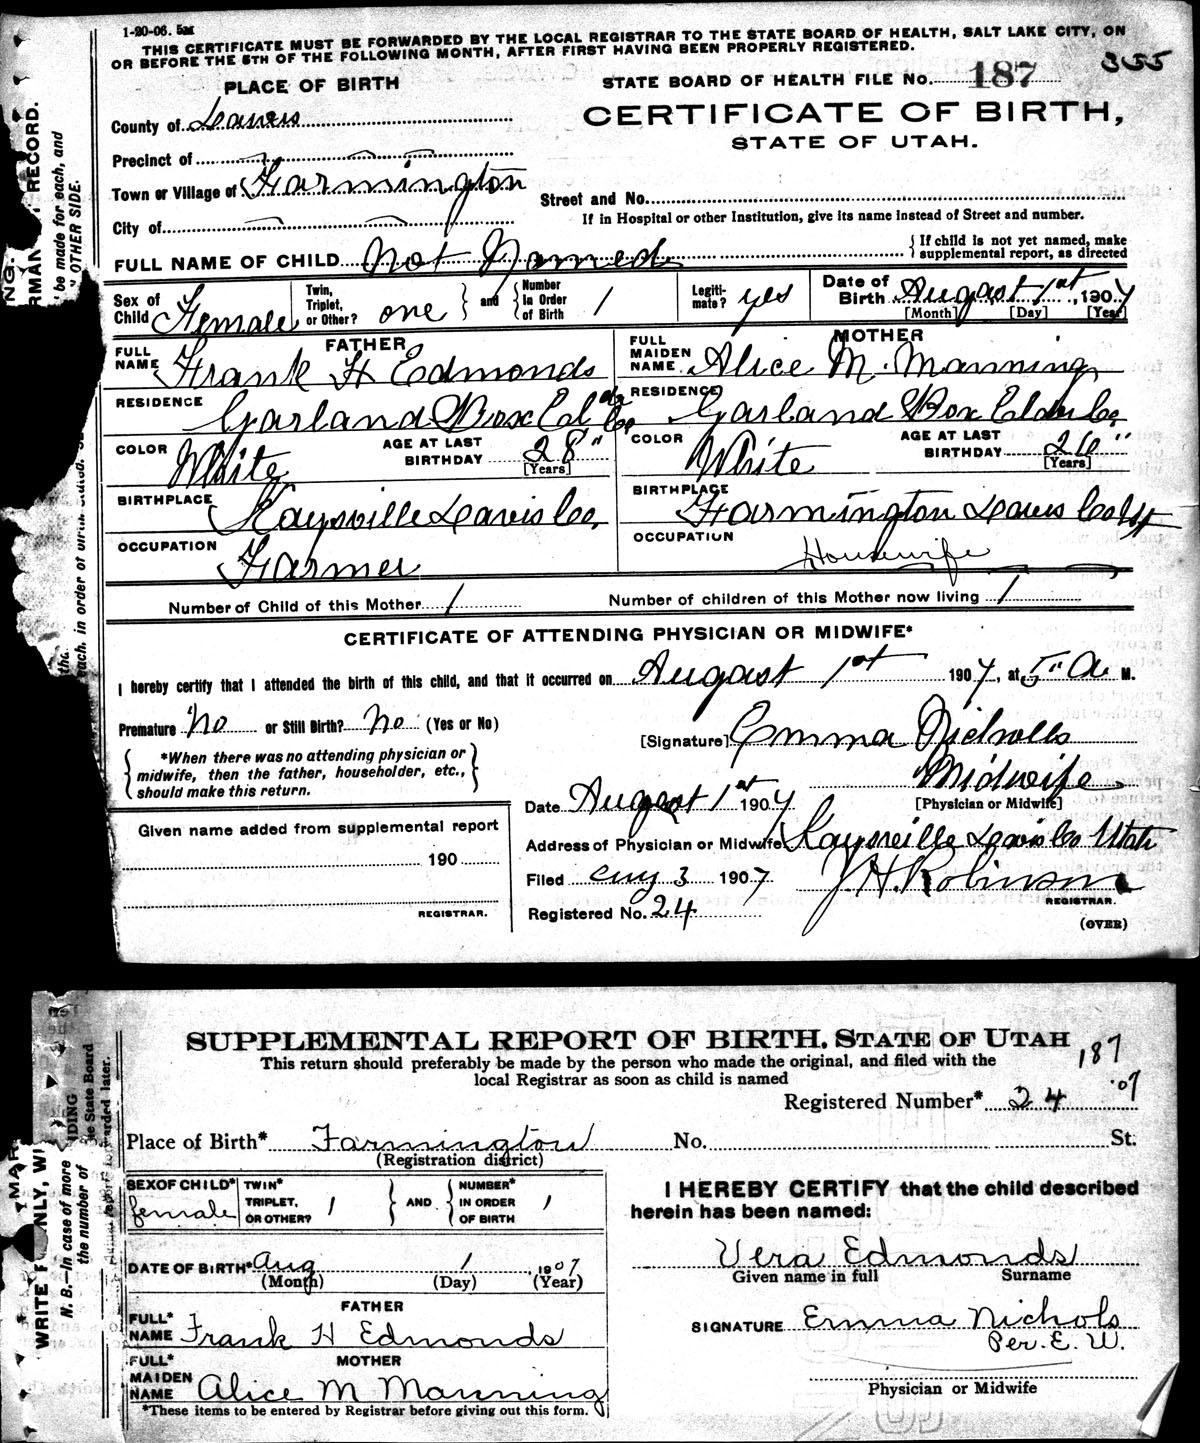 1-20-06. 5M
THIS CERTIFICATE MUST BE FORWARDED BY THE LOCAL REGISTRAR TO THE STATE BOARD OF HEALTH, SALT LAKE CITY, ON
OR BEFORE THE 5TH OF THE FOLLOWING MONTH, AFTER FIRST HAVING BEEN PROPERLY REGISTERED.
355
PLACE OF BIRTH
STATE BOARD OF HEALTH FILE No. 187
County of Davis
CERTIFICATE OF BIRTH,
STATE OF UTAH.
Precinct of
Town or Village of Farmington
Street and No.
City of
If in Hospital or other Institution, give its name instead of Street and number.
FULL NAME OF CHILD Not Named
If child is not yet named, make
supplemental report, as directed
Sex of Child Female
Twin, Triplet, or Other? one and Number In Order of Birth 1
Legiti-mate? yes
Date of Birth August 1st, 1907
[Month] [Day] [Year]
FATHER
FULL NAME Frank H Edmonds
MOTHER
FULL MAIDEN NAME Alice M. Manning
RESIDENCE Garland Box Elder Co
RESIDENCE Garland Box Elder Co
COLOR White AGE AT LAST BIRTHDAY 28" [Years]
COLOR White AGE AT LAST BIRTHDAY 26" [Years]
BIRTHPLACE Kaysville Davis Co,
BIRTHPLACE Farmington Davis Co Ut
OCCUPATION Farmer
OCCUPATION Housewife
Number of Child of this Mother 1 Number of children of this Mother now living 1
CERTIFICATE OF ATTENDING PHYSICIAN OR MIDWIFE*
I hereby certify that I attended the birth of this child, and that it occurred on August 1st 1907, at 5" A M.
Premature No or Still Birth? No (Yes or No)
[Signature] Emma Nicholls
Midwife
[Physician or Midwife]
*When there was no attending physician or
midwife, then the father, householder, etc.,
should make this return.
Date August 1st 1907
Given name added from supplemental report
190
REGISTRAR.
Address of Physician or Midwife Kaysville Davis Co Utah
Filed Aug 3 1907 J. H. Robinson
REGISTRAR.
Registered No. 24
(OVER)
SUPPLEMENTAL REPORT OF BIRTH. STATE OF UTAH
187
This return should preferably be made by the person who made the original, and filed with the
local Registrar as soon as child is named
Registered Number* 24 '07
Place of Birth* Farmington No. St.
(Registration district)
SEX OF CHILD* female
TWIN* TRIPLET, OR OTHER? 1 AND NUMBER* IN ORDER OF BIRTH 1
I HEREBY CERTIFY that the child described
herein has been named:
Vera Edmonds
Given name in full Surname
DATE OF BIRTH* Aug 1, 1907
(Month) (Day) (Year)
FATHER
FULL* NAME Frank H Edmonds
SIGNATURE Emma Nichols
Per. E. W.
MOTHER
FULL* MAIDEN NAME Alice M Manning
Physician or Midwife
*These items to be entered by Registrar before giving out this form.
RECORD.
be made for each, and
OTHER SIDE.
each, in order of birth stated.
WRITE
ONLY, WI
N. B.—In case of more
the number of